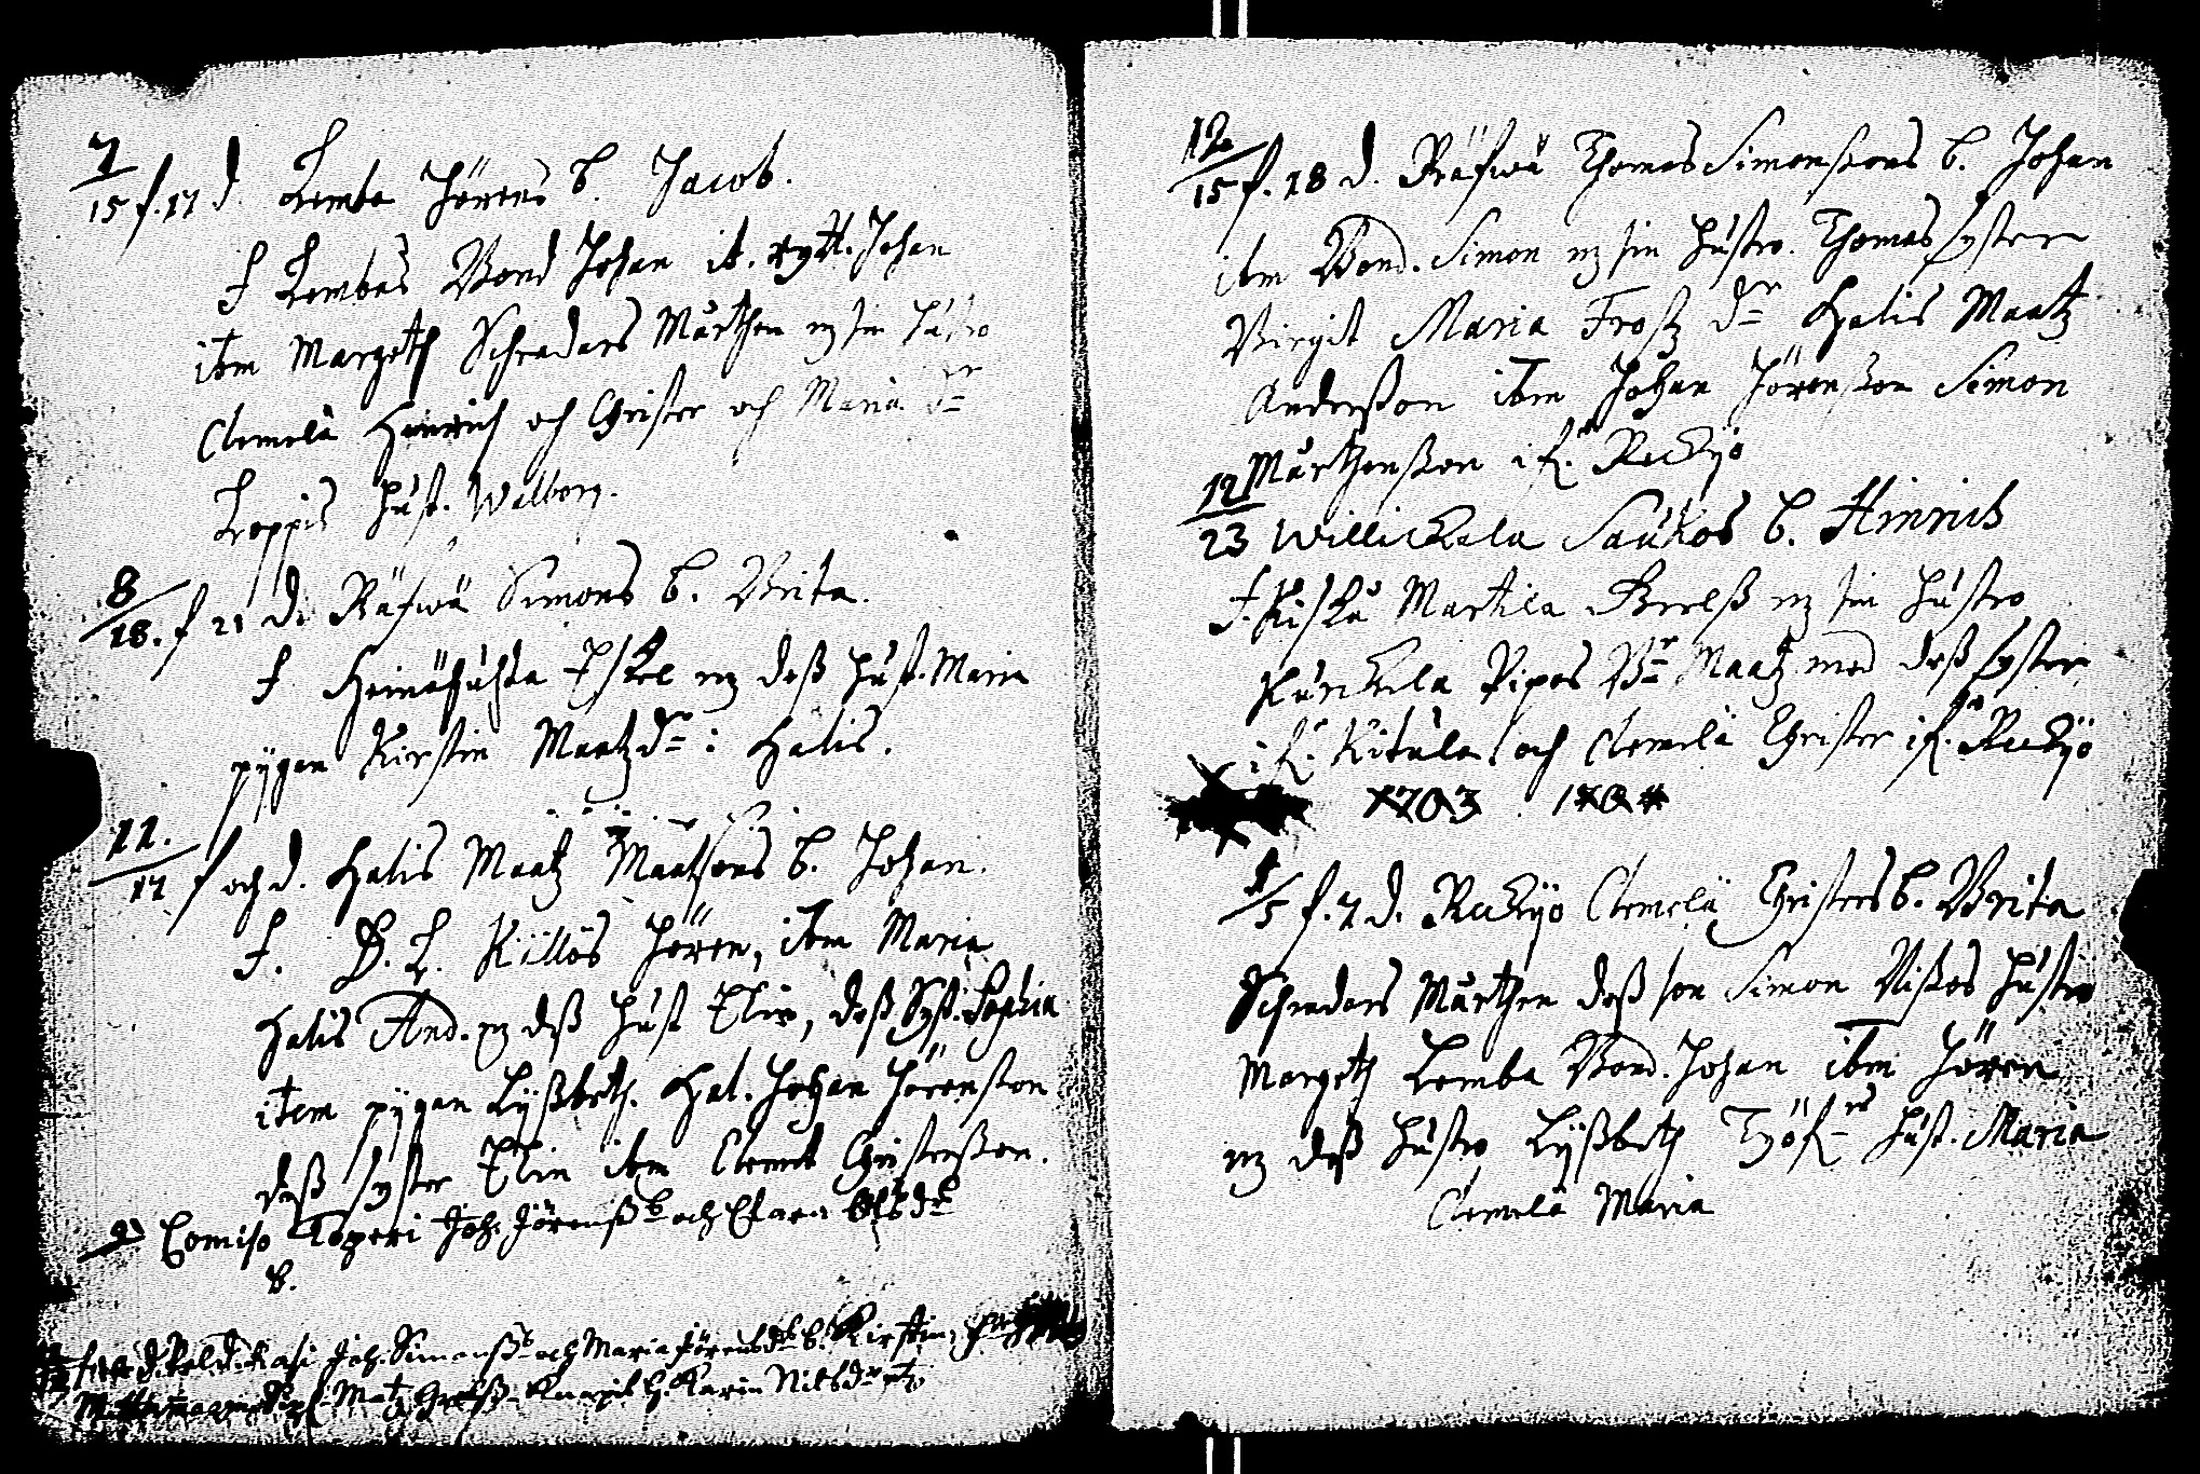 7
15 f. 17 d. Lemba Jörens b. Jacob.
f Lembas Bond Johan it. rytt. Johan
itm Margeth Schraders Mårthen m sin hustro
Clemelä Hinrich och Christer och Maria dr
Loppis hust. Walborg.
8
18. f 21 d. Räfwä Simons b. Brita.
f. Heinäsuhta Eskel m dess hust. Maria
pygan Kirstin Maatz dr: Hatis.
11.
17 f och d. Hatis Maatz Maatsons b. Johan.
f. B. L. Killös Jören, itm Maria
Hatis And. m dess hust Elin, dess Syst. Sophia
item pygan Lyssbeth. Hat. Johan Jörensson
dess syster Elin itm Clemet Christersson.
Comiso Toperi Joh. Jörenss och Clara dr
b.
Joh. Simonss och Maria Jörens dr b. Kirstin,
Matz Karin Nilsdr
12
15 f. 18 d. Räfwä Thomas Simonssons b. Johan
itm Bond. Simon m sin hustro. Thomas syster
Birgit Maria Frosz dr Hatis Maatz
Andersson itm Johan Jörensson Simon
Mårthensson i fr. Reckyö
12
23 Willickala Saukos b. Hinrich
f. Kiskå Martila Grelss m sin hustro
Kurckela Pipos Br Maatz med dess syster
i fr. Kitula och Clemelä Christer i fr. Reckyö
1703
1
5 f. 7 d. Reckyö Clemelä Christers b. Brita
Schraders Mårthen dess son Simon Nissos hustro
Margeth Lemba Bond. Johan itm Jören
m dess hustro Lyssbeth hust. Maria
Clemelä Maria